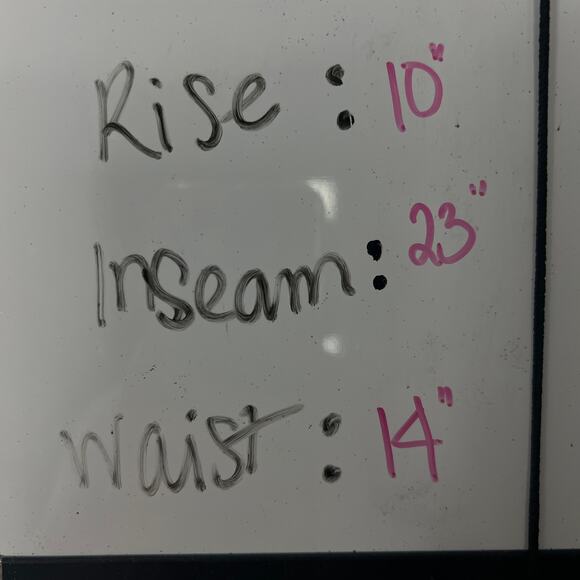 Rise : 10"
Inseam : 23"
Waist : 14"